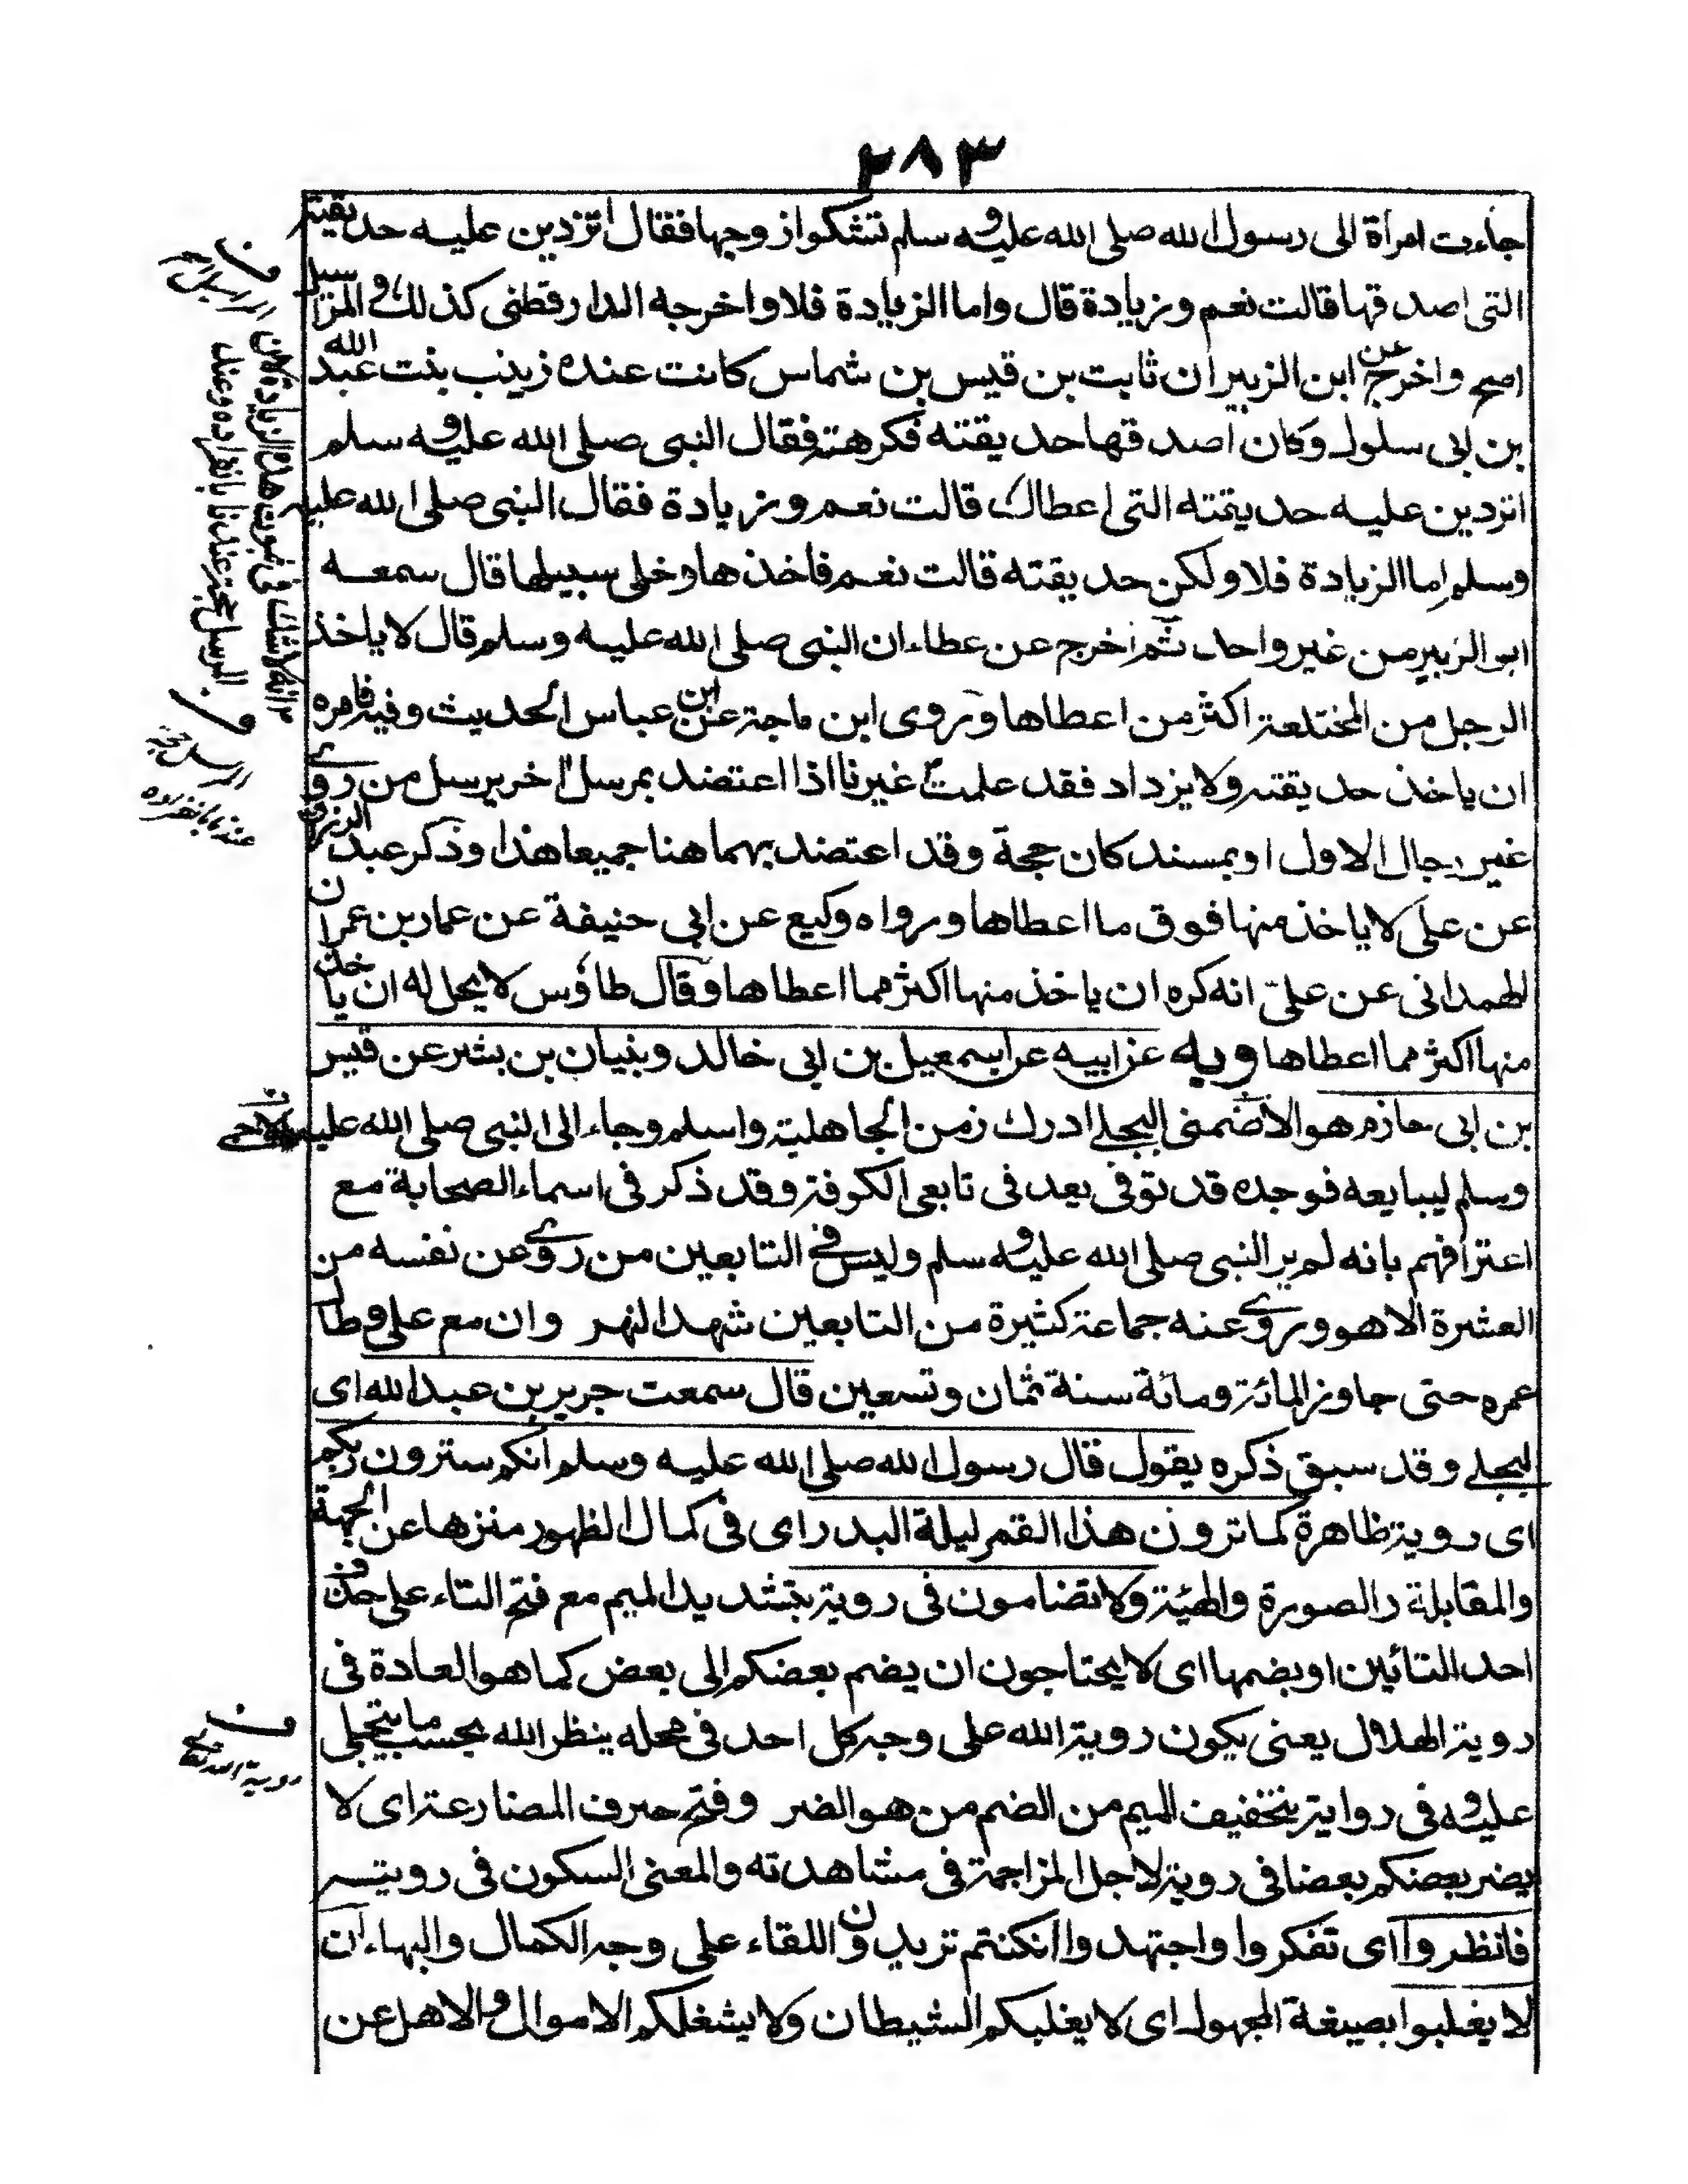 ٢٨٣
جاءت امرأة الى رسول الله صلى الله عليه وسلم تشكوا زوجها فقال اتزدين عليه حديقته
التى اصدقها قالت نعم وزيادة قال واما الزيادة فلا واخرجه الدارقطنى كذلك والمرسل
اصح واخرج عن ابن الزبير ان ثابت بن قيس بن شماس كانت عنده زينب بنت عبد الله
بن ابى سلول وكان اصدقها حديقته فكرهته فقال النبى صلى الله عليه وسلم
اتزدين عليه حديقته التى اعطاك قالت نعم وزيادة فقال النبى صلى الله عليه
وسلم اما الزيادة فلا ولكن حديقته قالت نعم فاخذها وخلى سبيلها قال سمعه
ابو الزبير من غير واحد ثم اخرج عن عطاء ان النبى صلى الله عليه وسلم قال لا ياخذ
الرجل من المختلعة اكثر من اعطاها وروى ابن ماجة عن ابن عباس الحديث وفيه فامره
ان ياخذ حديقته ولا يزداد فقد علمت غيرنا اذا اعتضد بمرسل اخر يرسل من روى
غير رجال الاول او بمسند كان حجة وقد اعتضد بهما هنا جميعا هذا وذكر عبد الرزاق
عن على لا ياخذ منها فوق ما اعطاها ورواه وكيع عن ابى حنيفة عن عمار بن عمران
الهمدانى عن على انه كره ان ياخذ منها اكثر مما اعطاها وقال طاؤس لا يحل له ان ياخذ
منها اكثر مما اعطاها وبه عن ابيه عن اسمعيل بن ابى خالد وبنيان بن بشر عن قيس
بن ابى حازم هو الاضمنى البجلے ادرك زمن الجاهلية واسلم وجاء الى النبى صلى الله عليه
وسلم ليبايعه فوجده قد توفى يعد فى تابعى الكوفة وقد ذكر فى اسماء الصحابة مع
اعترافهم بانه لم ير النبى صلى الله عليه وسلم وليس فى التابعين من روى عن نفسه من
العشرة الا هو وروى عنه جماعة كثيرة من التابعين شهد النهر وان مع على وطال
عمره حتى جاوز المائة ومائة سنة ثمان وتسعين قال سمعت جرير بن عبد الله اى
البجلے وقد سبق ذكره يقول قال رسول الله صلى الله عليه وسلم انكم سترون ربكم
اى روية ظاهرة كما ترون هذا القمر ليلة البدر اى فى كمال الظهور منزها عن الجهة
والمقابلة والصورة والهيئة ولا تضامون فى روية بتشديد الميم مع فتح التاء على حذف
احد التائين او بضمها اى لا يحتاجون ان يضم بعضكم الى بعض كما هو العادة فى
روية الهلال يعنى يكون روية الله على وجه كل احد فى محله ينظر الله بحسب ما يتجلى
عليه وفى رواية بتخفيف الميم من الضم من هو الضر وفتح حرف المضارعة اى لا
يضر بعضكم بعضا فى روية لاجل المزاحمة فى مشاهدته والمعنى السكون فى رويته
فانظروا اى تفكروا واجتهدوا ان كنتم تريدون اللقاء على وجه الكمال والبهاء ان
لا يغلبوا بصيغة المجهول اى لا يغلبكم الشيطان ولا يشغلكم الاموال والاهل عن
ف
لانه لا شك فى ثبوت هذه الزيادة لان
المرسل حجة عندنا بانفراده وعند
ف
المرسل حجة
عندنا بانفراده
ف
روية الله تعالى